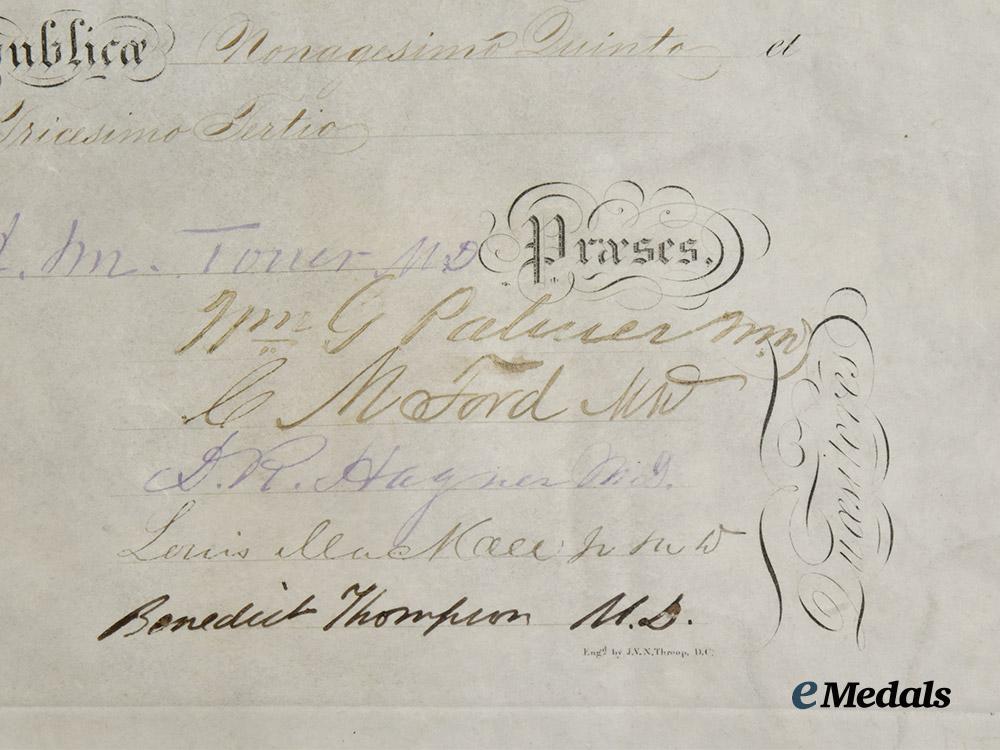 publicæ Nonagesimo Quinto et
Tricesimo Tertio
M. Toner M.D. Præses.
Wm G Palmer M.D.
C M Ford MD
D. R. Hagner M.D.
Louis MacKall Jr M D
Benedict Thompson M.D.
Censores
Engd by J.V.N. Throop, D.C.
eMedals